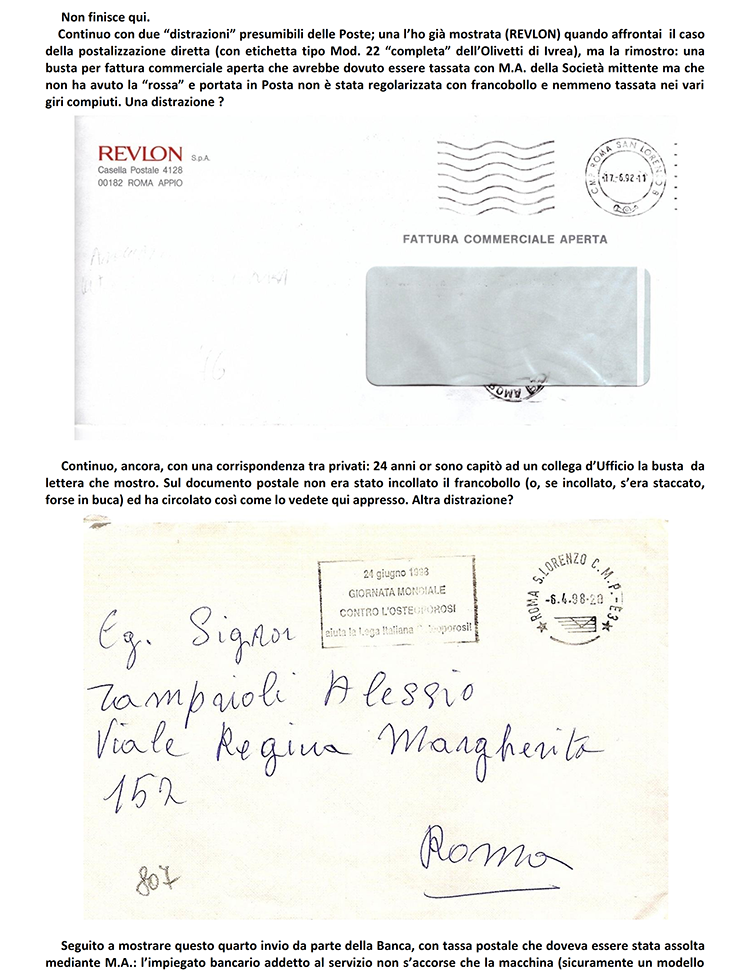 Non finisce qui.
Continuo con due “distrazioni” presumibili delle Poste; una l’ho già mostrata (REVLON) quando affrontai il caso
della postalizzazione diretta (con etichetta tipo Mod. 22 “completa” dell’Olivetti di Ivrea), ma la rimostro: una
busta per fattura commerciale aperta che avrebbe dovuto essere tassata con M.A. della Società mittente ma che
non ha avuto la “rossa” e portata in Posta non è stata regolarizzata con francobollo e nemmeno tassata nei vari
giri compiuti. Una distrazione ?
REVLON S.p.A.
Casella Postale 4128
00182 ROMA APPIO
CMP ROMA SAN LOREN
17.-6.92-11
FATTURA COMMERCIALE APERTA
Continuo, ancora, con una corrispondenza tra privati: 24 anni or sono capitò ad un collega d’Ufficio la busta da
lettera che mostro. Sul documento postale non era stato incollato il francobollo (o, se incollato, s’era staccato,
forse in buca) ed ha circolato così come lo vedete qui appresso. Altra distrazione?
24 giugno 1998
GIORNATA MONDIALE
CONTRO L'OSTEOPOROSI
aiuta la Lega Italiana Osteoporosi!
ROMA S.LORENZO C.M.P.-E3
-6.4.98-20
Eg. Signor
Zampaioli Alessio
Viale Regina Margherita
152
Roma
807
Seguito a mostrare questo quarto invio da parte della Banca, con tassa postale che doveva essere stata assolta
mediante M.A.: l’impiegato bancario addetto al servizio non s’accorse che la macchina (sicuramente un modello